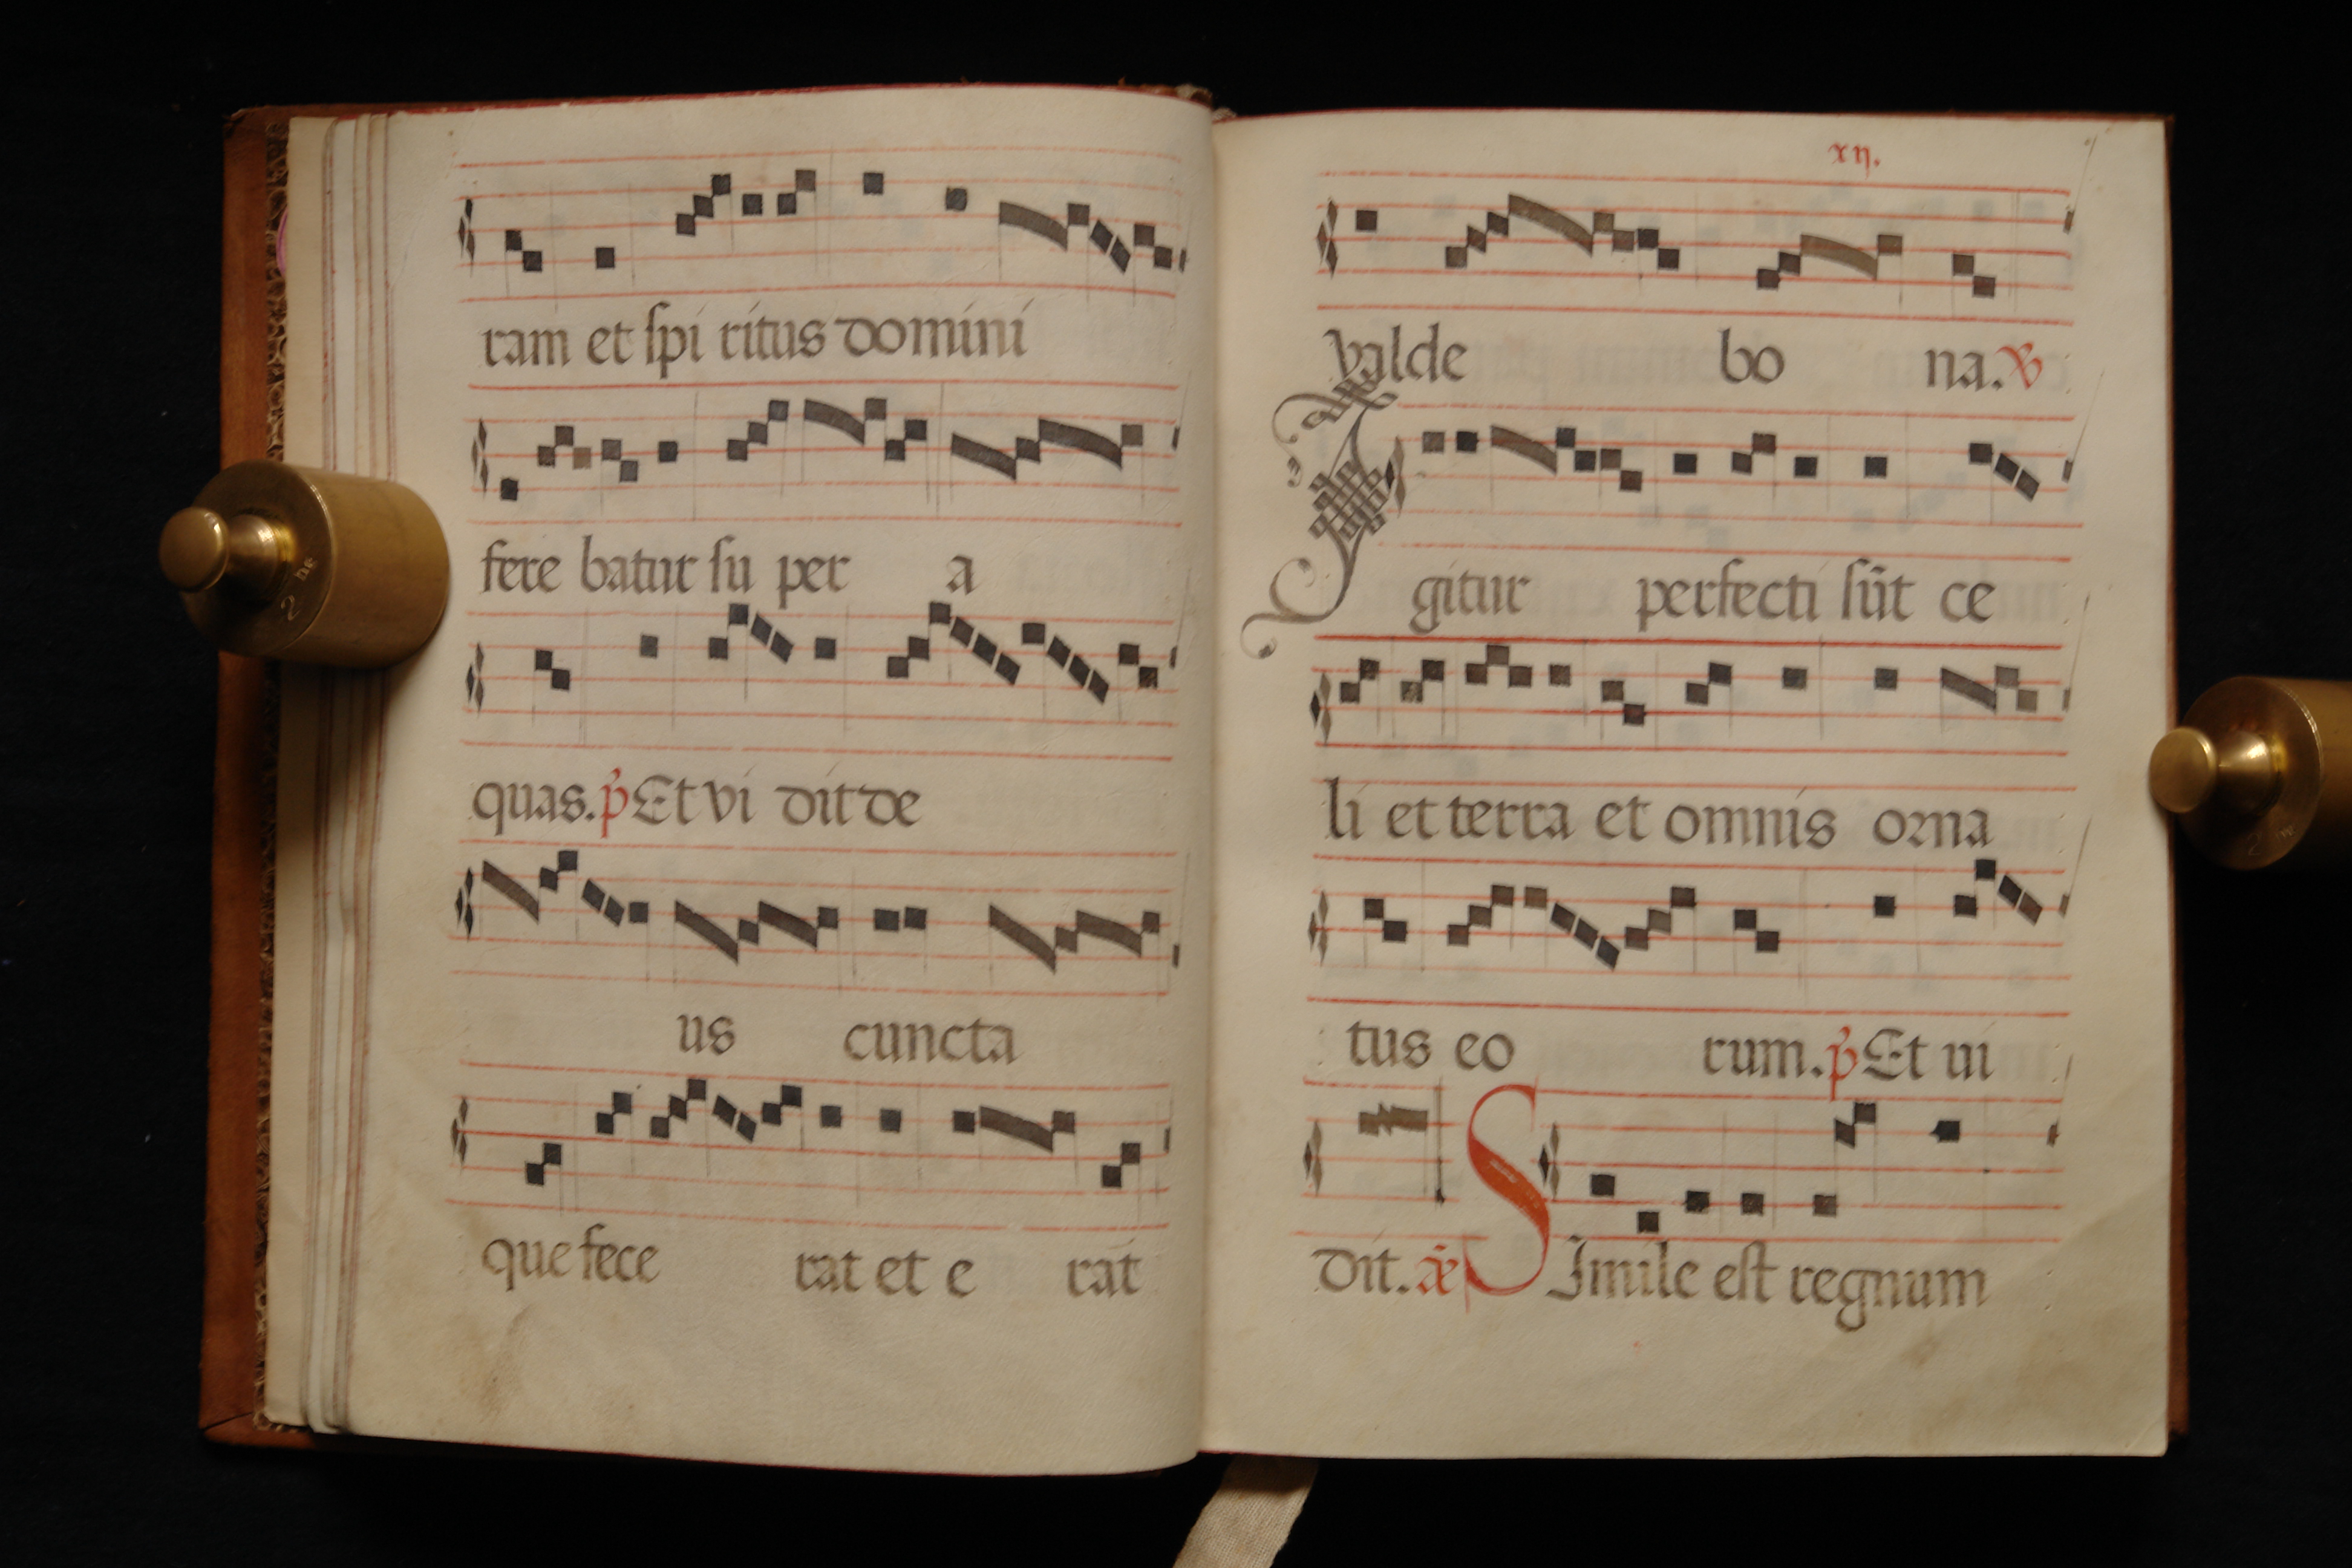 ram et spi ritus domini
fere batur su per a
quas. p̃ Et vi dit de
us cuncta
que fece rat et e rat
xij.
valde bo na. ꝟ
Igitur perfecti sūt ce
li et terra et omnis orna
tus eo rum. p̃ Et ui
dit. Simile est regnum
2 he